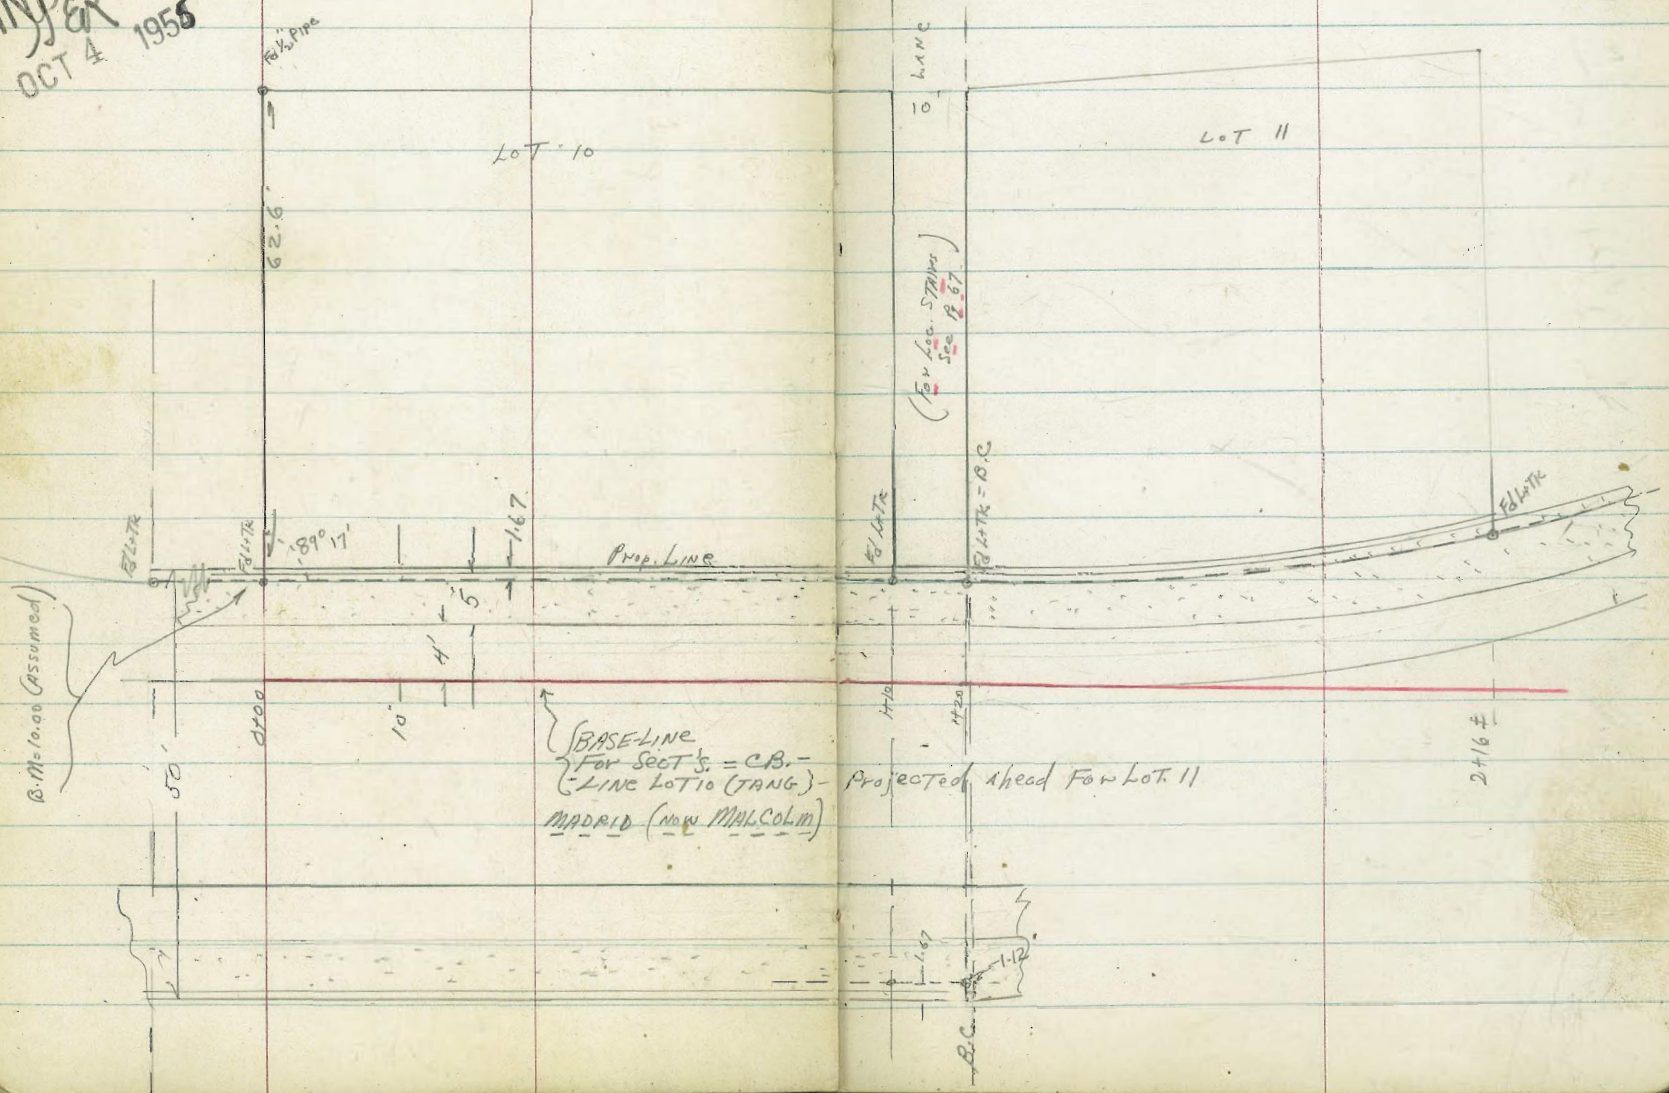 OCT 4 1955
Fd ½" Pipe
LOT 10
10' LANE
LOT 11
62.6'
(For Loc. STAIRS
See Pg 67)
Fd L+TK
Fd L+TK
89° 17'
1.67
Prop. LINE
Fd L+TK
Fd L+TK = B.C.
Fd L+TK
5'
4'
10'
50'
B.M. = 10.00 (Assumed)
0+00
1+10
1+20
2+16 ±
BASE-LINE
For SecT's. = CB.-
-LINE LOT 10 (TANG)- Projected Ahead For LOT. 11
MADRID (NOW MALCOLM)
1.67
1.12
B.C.